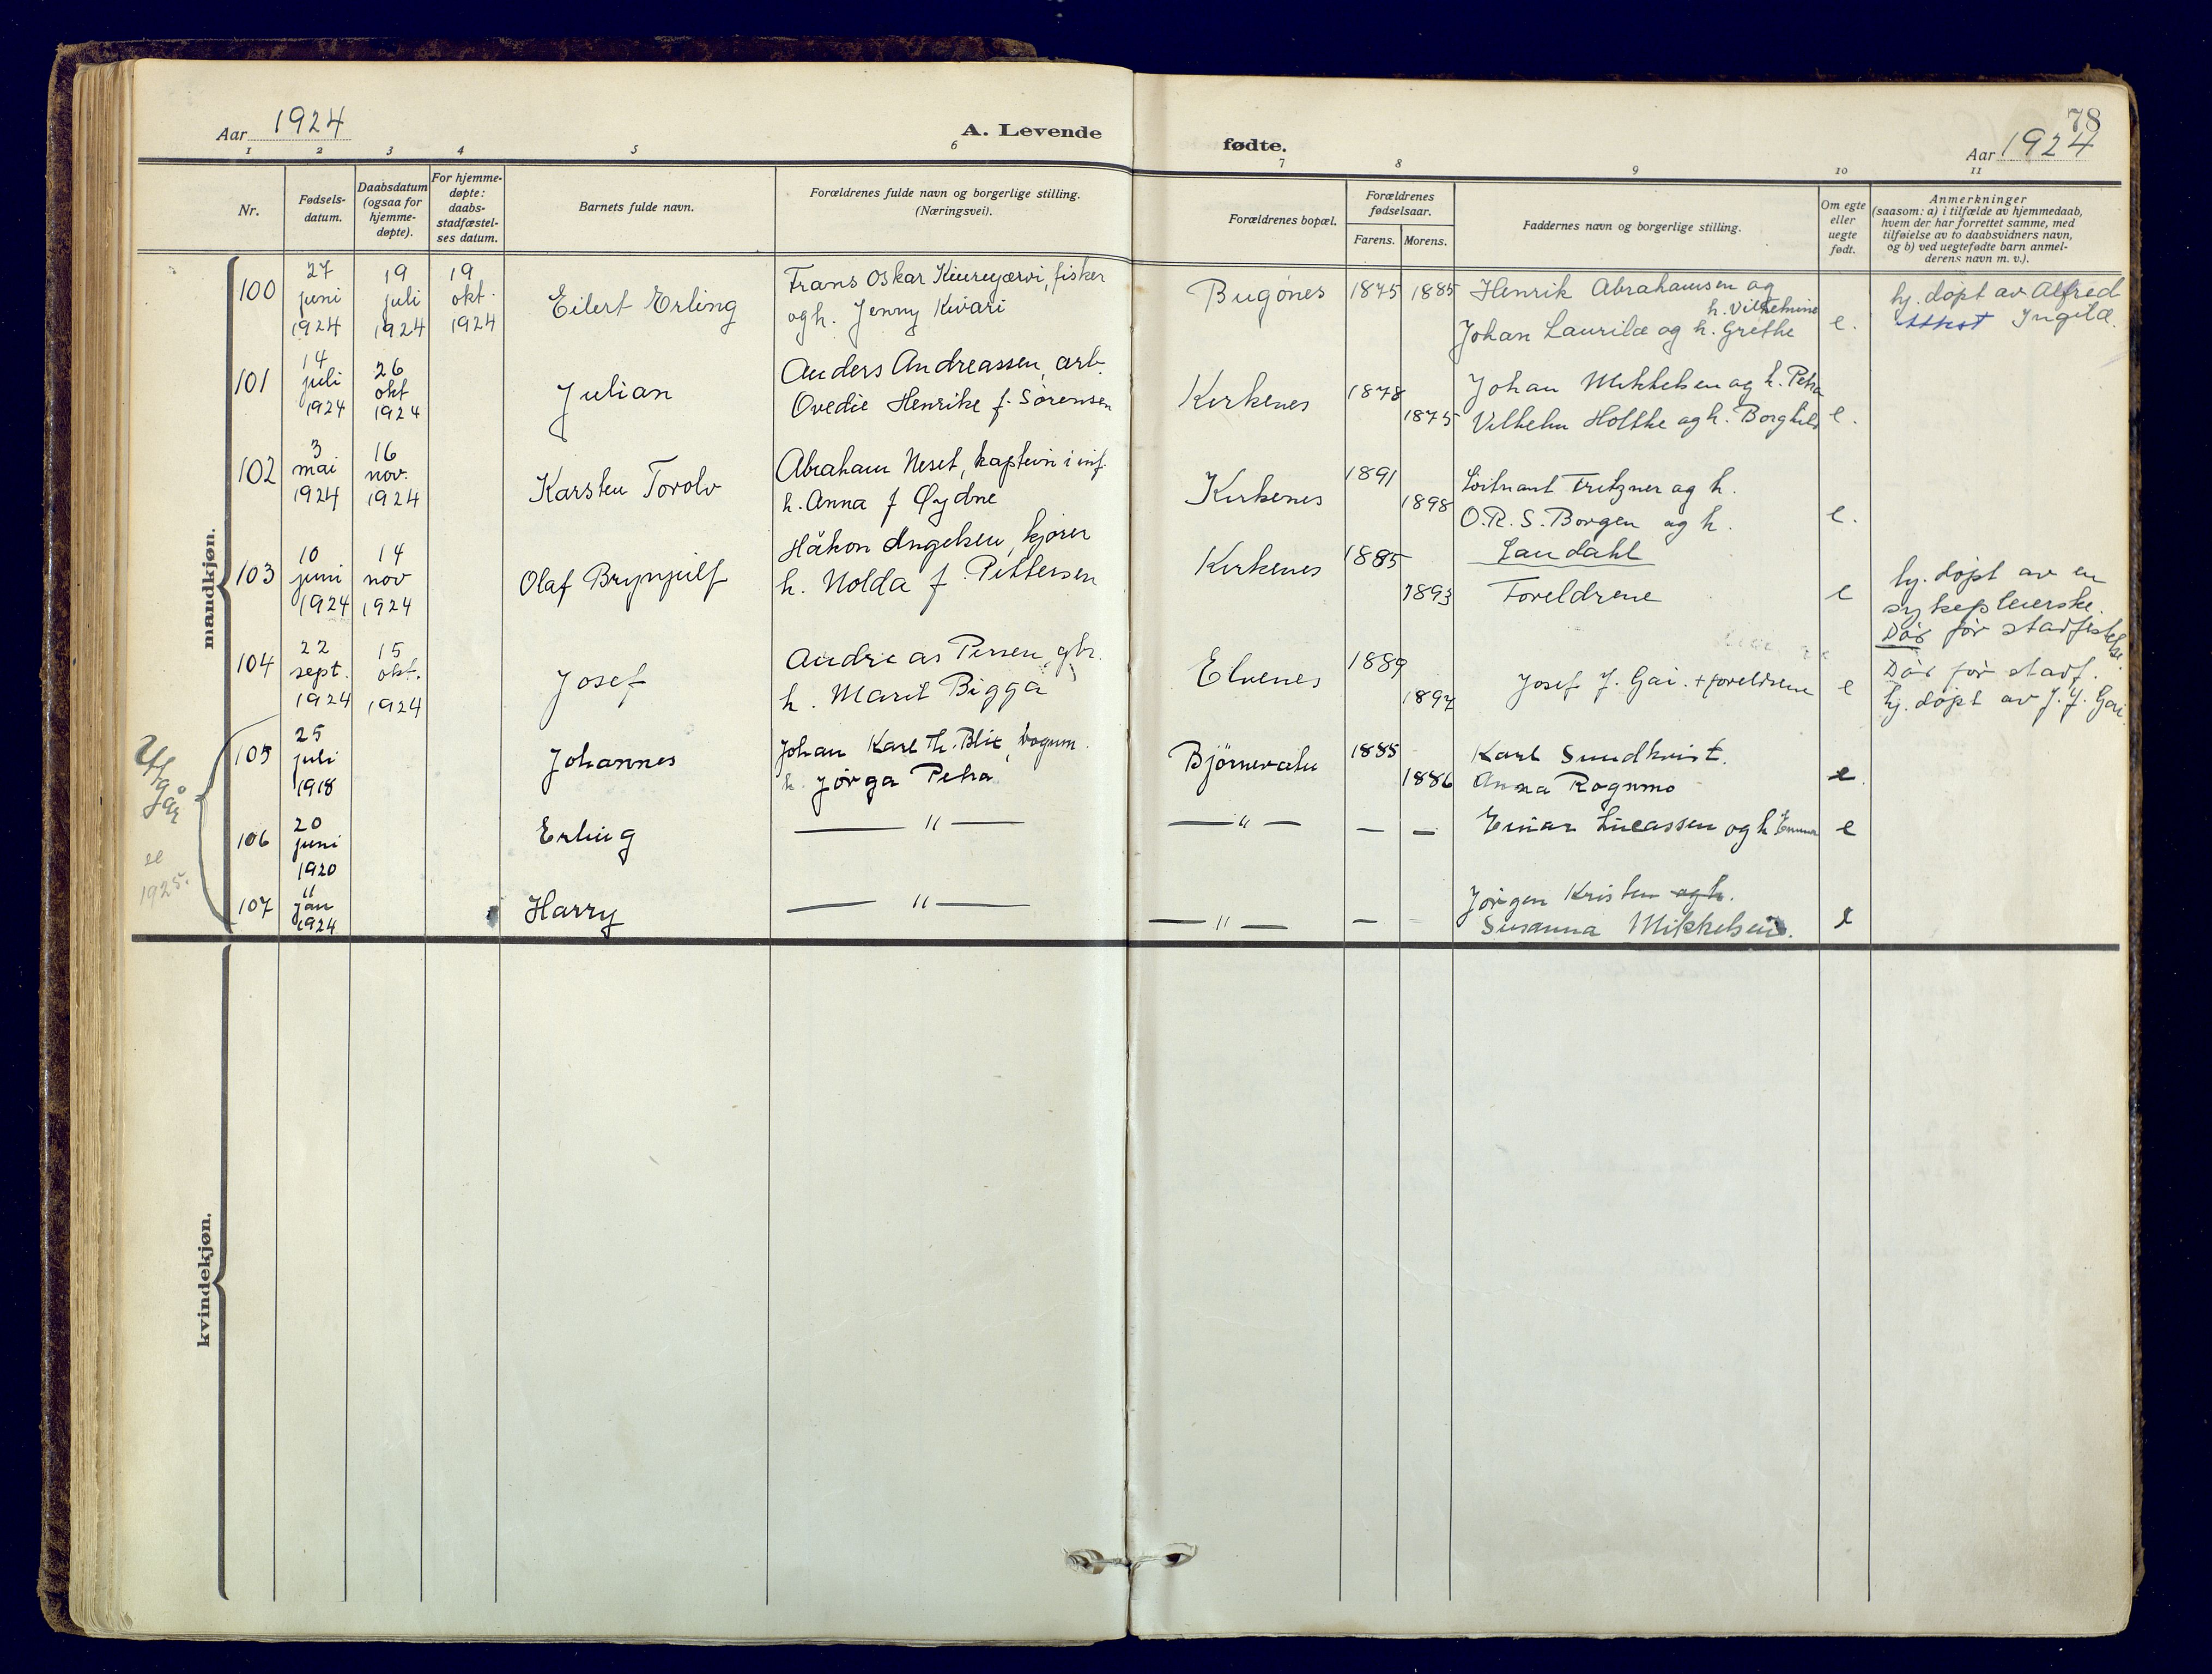 Aar 1924
A. Levende
fødte.
78
Aar 1924
1 2 3 4 5 6 7 8 9 10 11
Nr.
Fødsels-
datum.
Daabsdatum
(ogsaa for
hjemme-
døpte).
For hjemme-
døpte:
daabs-
stadfæstel-
ses datum.
Barnets fulde navn.
Forældrenes fulde navn og borgerlige stilling.
(Næringsvei).
Forældrenes bopæl.
Forældrenes
fødselsaar.
Farens. Morens.
Faddernes navn og borgerlige stilling.
Om egte
eller
uegte
født.
Anmerkninger
(saasom: a) i tilfælde av hjemmedaab,
hvem der har forrettet samme, med
tilføielse av to daabsvidners navn,
og b) ved uegtefødte barn anmel-
derens navn m. v.).
mandkjøn.
100
27
juni
1924
19
juli
1924
19
okt.
1924
Eilert Erling
Frans Oskar Kiurujærvi, fisker
og h. Jenny Kivari
Bugønes
1875 1885
Henrik Abrahamsen og
h. Vilhelmine
Johan Laurila og h. Grethe
e.
hj. døpt av Alfred
Ingilæ.
101
14
juli
1924
26
okt
1924
Julian
Anders Andreassen, arb.
Ovedie Henrike f. Sørensen
Kirkenes
1878
1875
Johan Mikkelsen og h. Petra
Vilhelm Holthe og h. Borghild
e.
102
3
mai
1924
16
nov.
1924
Karsten Torolv
Abraham Neset, kaptein i inf.
h. Anna f Øydne
Kirkenes
1891
1898
Løitnant Fritzner og h.
O.R.S. Borgen og h.
e.
103
10
juni
1924
14
nov
1924
Olaf Brynjulf
Håkon Angelsen, kjører
h. Nolda f. Pettersen
Kirkenes
1885
1893
Landahl
Foreldrene
e
hj. døpt av en
sykepleierske.
Død før stadfestelse
104
22
sept.
1924
15
okt.
1924
Josef
Andreas Persen, gbr.
h. Marit Bigga
Elvenes
1889
1897
Josef J. Gai. + foreldrene
e
Død før stadf.
hj. døpt av J. J. Gai
Utgår
se
1925.
105
25
juli
1918
Johannes
Johan Karl Th. Blix, vognm.
h. Jørga Petra
Bjørnevatn
1885
1886
Karl Sundkvist.
Anna Rognmo
e.
106
20
juni
1920
Erling
— " —
— " —
— —
Einar Lucassen og h Emma
e
107
11
jan
1924
Harry
— " —
— " —
—
Jørgen Kristen og h.
Susanna Mikkelsen.
e
kvindekjøn.